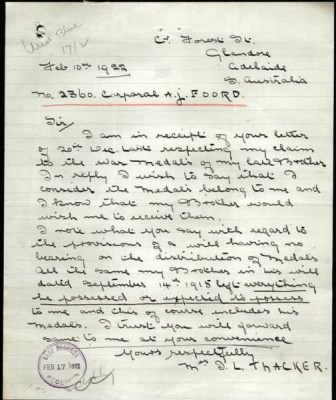 Cr. Forest St.
Glandore
Feb 10th 1922 Adelaide
17/2
S. Australia
No. 2360. Corporal A.J. FOORD.
Sir/
I am in receipt of your letter
of 20th Dec. last respecting my claim
to the War Medals of my late Brother
In reply I wish to say that I
consider the Medals belong to me and
I know that my Brother would
wish me to receive them.
I note what you say with regard to
the provisions of a will having no
bearing on the distribution of Medals
All the same my Brother in his will
dated September 14th 1915 left everything
he possessed or expected to possess
to me and this of course includes his
Medals. I trust you will forward
same to me at your convenience
Yours respectfully
Mrs I. L. THACKER.
BASE RECORDS
FEB 17 1922